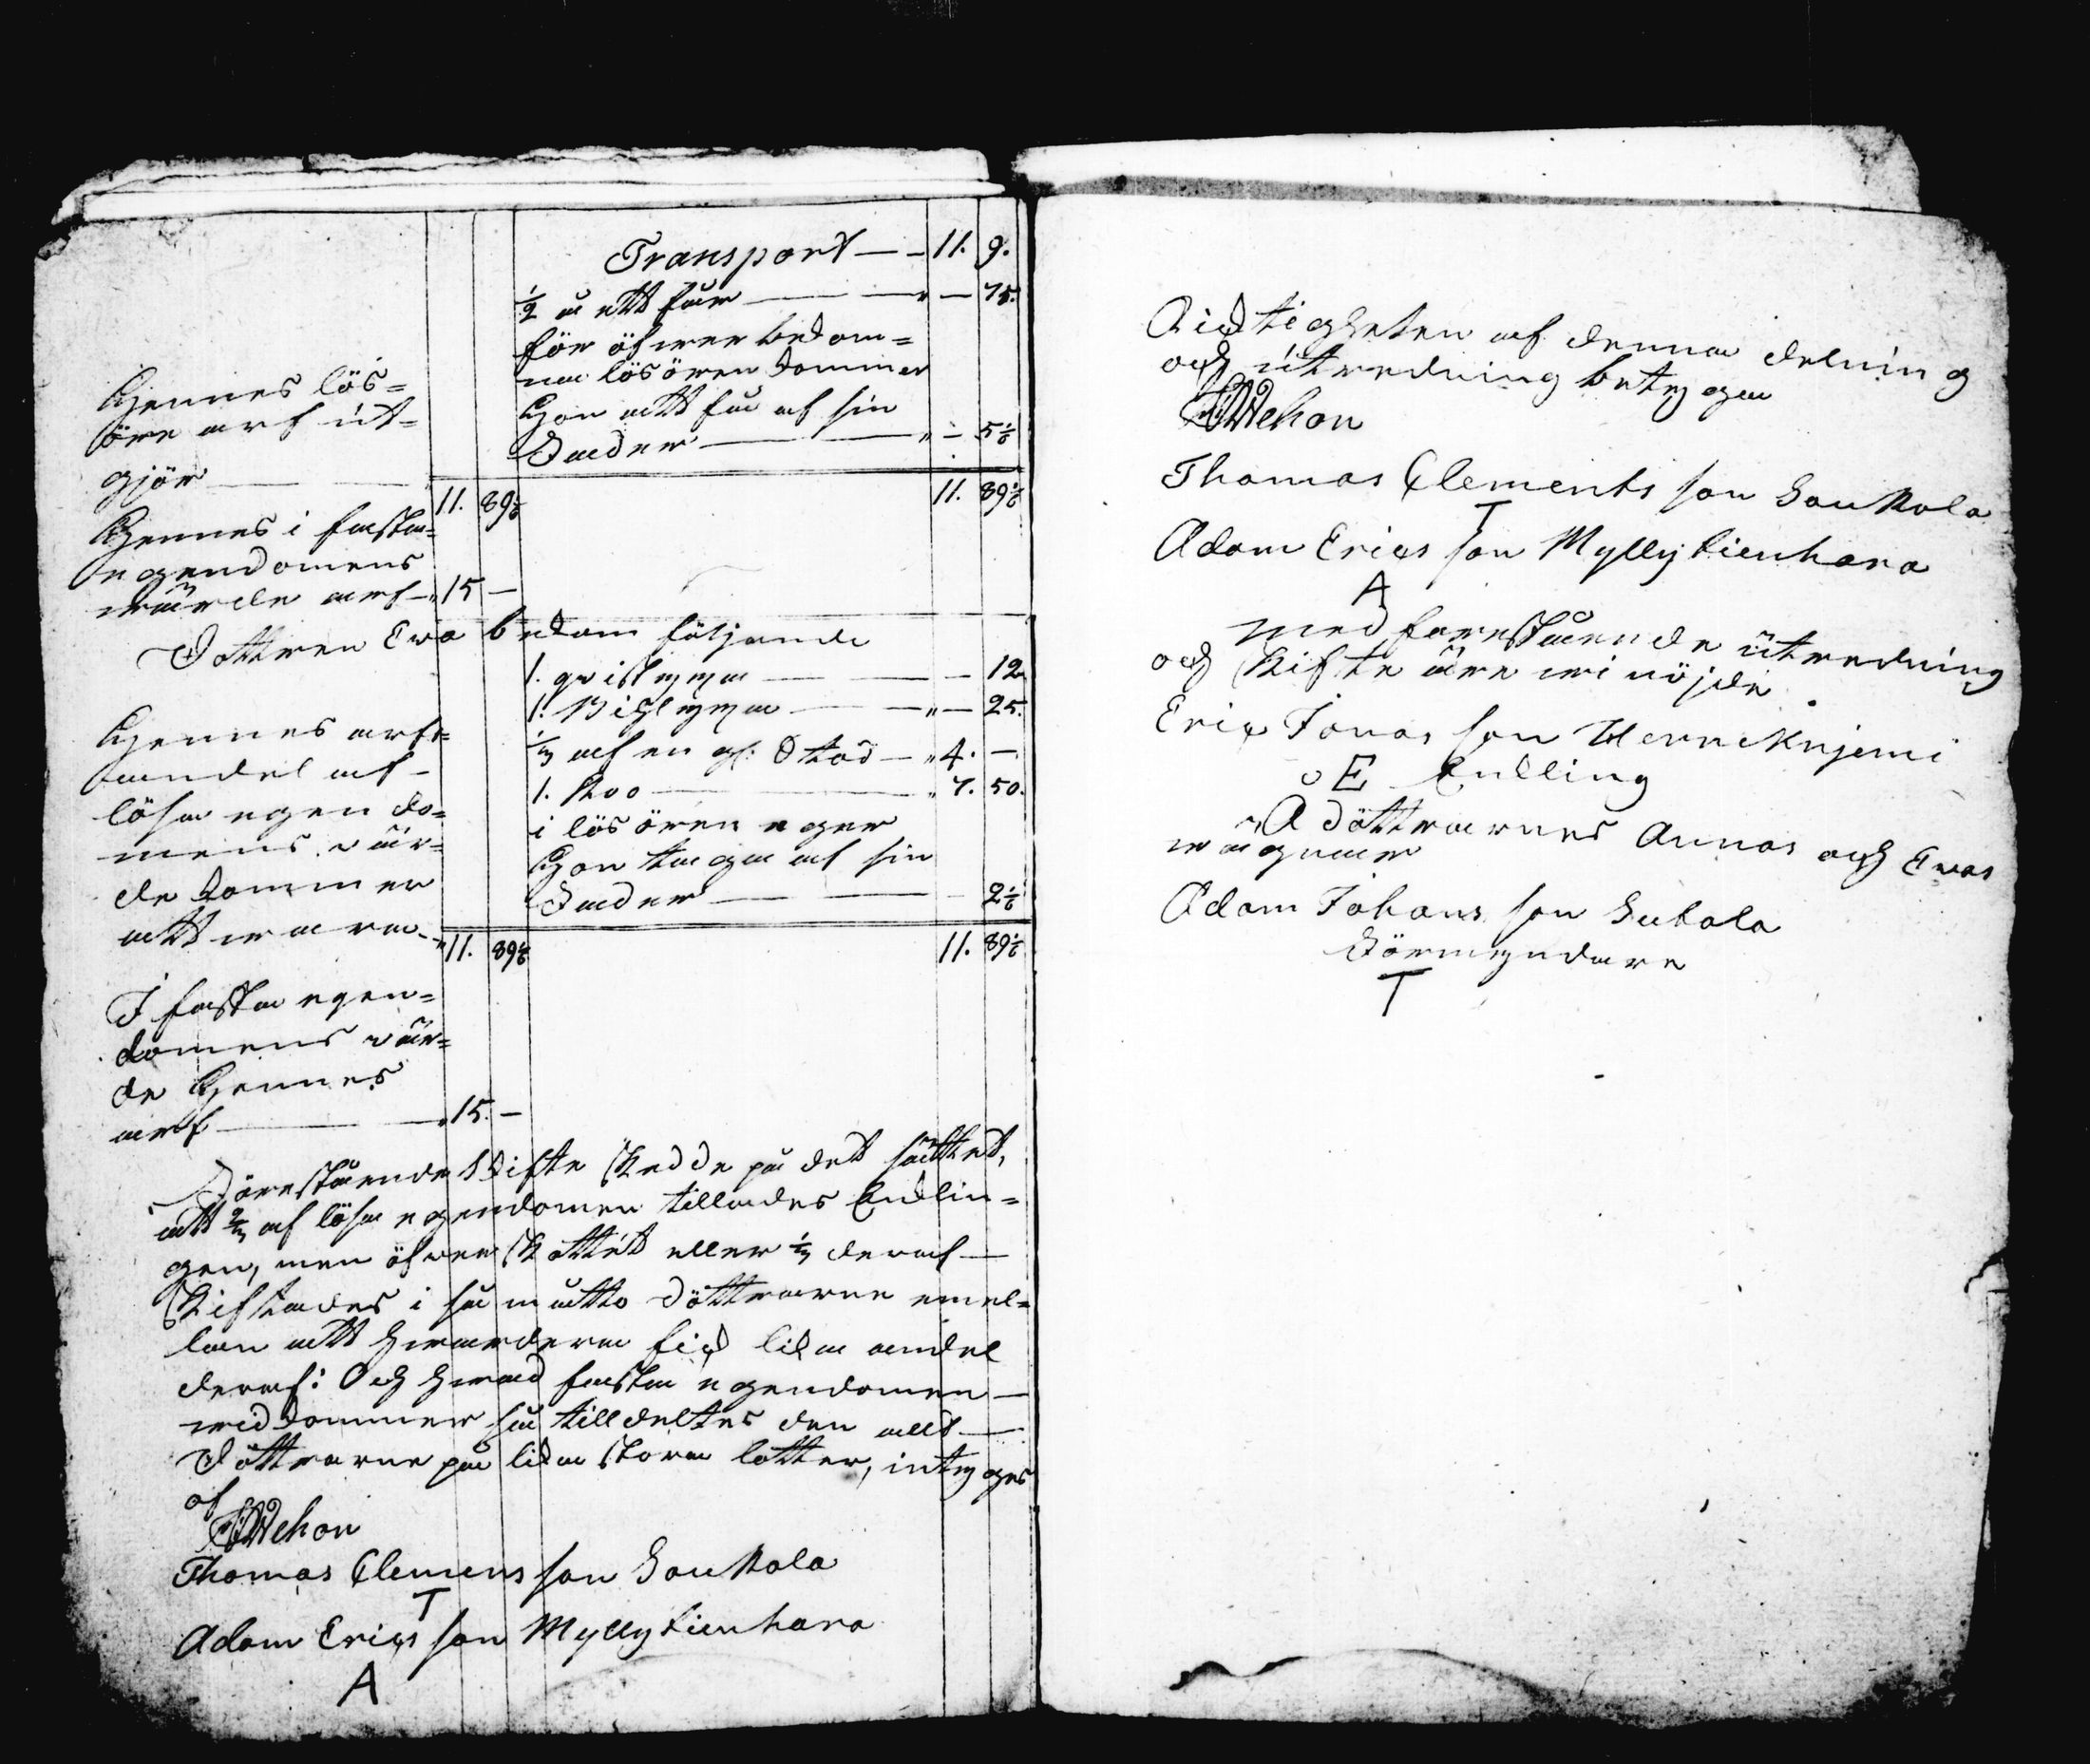 Transport — — 11. 9.
½ a ett får — — " — 75.
för öfwer bekom=
na lösören kommer
Hon att få af sin
Fader — — " — 5⅙
11. 89⅙
Hennes lös=
öre arf ut=
gjör — — 11. 89⅙
Hennes i fasta
egendomens
wärde arf — " 15 —
Dottren Eva bekom följande
1. qvistyxa — — — 12
1. Bihlyxa — — " — 25.
⅓ af en gl. Stod — " 4. —
1. Koo — — " 7. 50.
i lösören eger
Hon taga af sin
Fader — — — 2⅙
11. 89⅙
Hennes arfs=
andel af
lösa egendo=
mens wär=
de kommer
att wara — " 11. 89⅙
I fasta egen=
domens wär=
de Hennes
arf — — " 15. —
Förestående Skifte skedde på det sättet,
att ⅔ af lösa egendomen tillades Enklin=
gen, men öfwerskottet eller ⅓ deraf —
skiftades i så måtto döttrarne emel=
lan att hwardera fick lika andel
deraf: Och hwad fasta egendomen —
widkommer så tilldeltes den allt —
Döttrarne på lika stora lotter, intyges
af
Wehon
Thomas Clemensson Soukkola
T
Adam Ericsson Myllykienhara
A
Ricktigheten af denna delning
och utredning betyga
Wehon
Thomas Clementsson Soukkola
T
Adam Ericsson Myllykienhara
A
Med forestående utredning
och skifte äre wi nöjde
Eric Jonasson Hernekujemi
E Enkling
å döttrarnes Annas och Evas
wägnar
Adam Johansson Sukala
Förmyndare
T